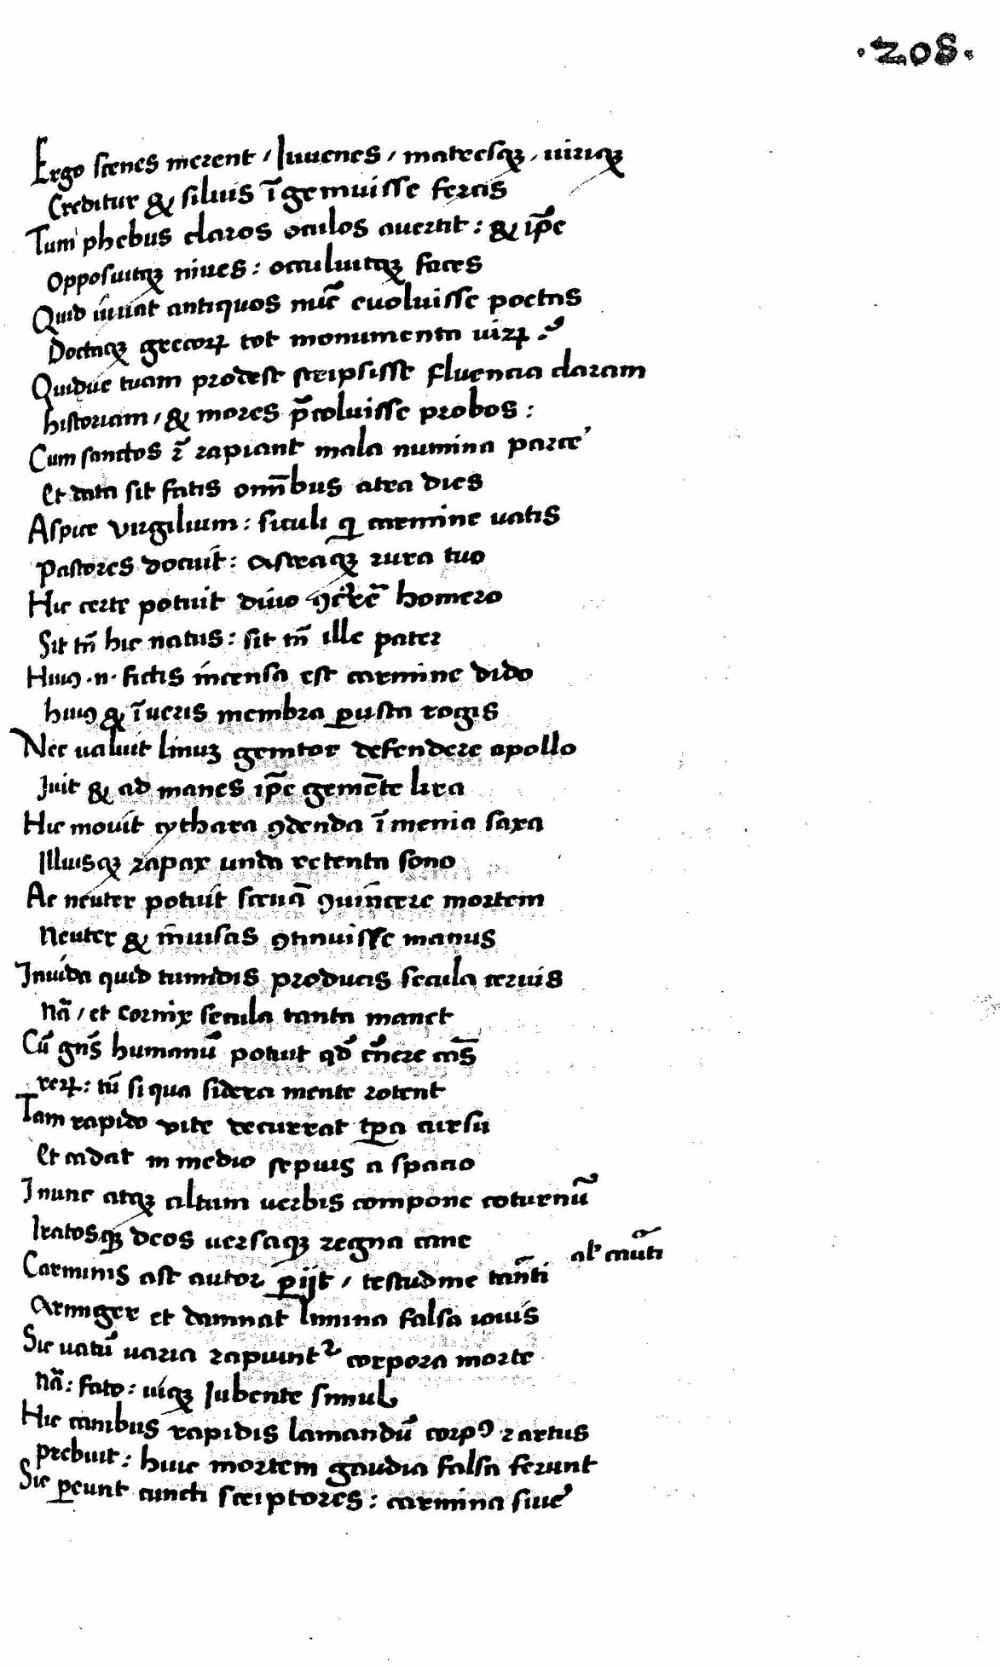 .208.
Ergo senes merent / Iuuenes / matresqꝫ / uiriqꝫ
Creditur & siluis īgemuisse feras
Tum phebus claros oculos auertit : & ip̄e
Opposuitqꝫ niues : occuluitqꝫ faces
Quid iuuat antiquos nūc euoluisse poetas
Doctaqꝫ grecoꝝ tot monumenta uiꝝ ?
Quidue tuam prodest scripsisse fluencia claram
historiam / & mores p̄coluisse probos :
Cum sanctos r̄ rapiant mala numina parce
Et data sit fatis om̄ibus atra dies
Aspice virgilium : siculi q carmine uatis
pastores docuit : astraqꝫ rura tuo
Hic certe potuit diuo ꝯcerē homero
Sit tn̄ hic natus : sit tn̄ ille pater
Huiꝰ .n. fictis incensa est carmine dido
huiꝰ & īueris membra ꝑusta rogis
Nec ualuit linuꝫ genitor defendere apollo
Iuit & ad manes ip̄e gemēte lira
Hic mouit cythara ꝯdenda ī menia saxa
Illiusqꝫ rapax unda retenta sono
Ac neuter potuit seuā ꝯuincere mortem
Neuter & inuisas ꝯtinuisse manus
Inuida quid tumidis producis secula ceruis
Nā / et cornix secula tanta manet
Cū gn̄s humanū potuit qd̄ cn̄ere cās
reꝝ : tū si qua sidera mente rotent
Tam rapido vite decurrat tꝑa cursu
Et cadat in medio sepius a spacio
I nunc atqꝫ altum uerbis compone coturnū
Iratosqꝫ deos uersaqꝫ regna cane
Carminis ast autor ꝑijt / testudine tanti
al' cauti
Armiger et damnat limina falsa iouis
Sic uatū uaria rapiuntᷣ corpora morte
Nā : fato : uiqꝫ Iubente simul
Hic canibus rapidis lamandū corpꝰ & artus
prebuit : huic mortem gaudia falsa ferunt
Sic ꝑeunt cuncti scriptores : carmina siue